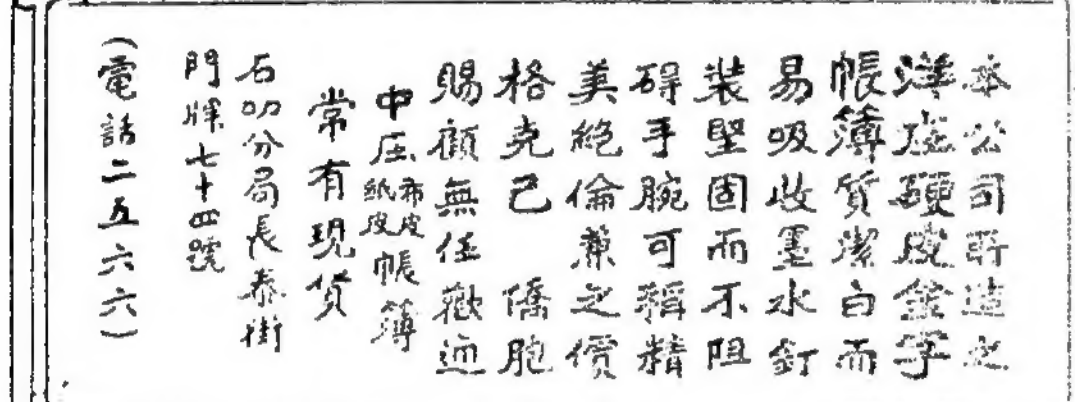 本公司所造之
洋庄硬皮金字
帳簿質潔白而
易吸收墨水釘
裝堅固而不阻
碍手腕可稱精
美絶倫兼之價
格克己 僑胞
賜顧無任歡迎
中庄布皮紙皮帳簿
常有現貨
石叻分局長泰街
門牌七十四號
(電話二五六六)